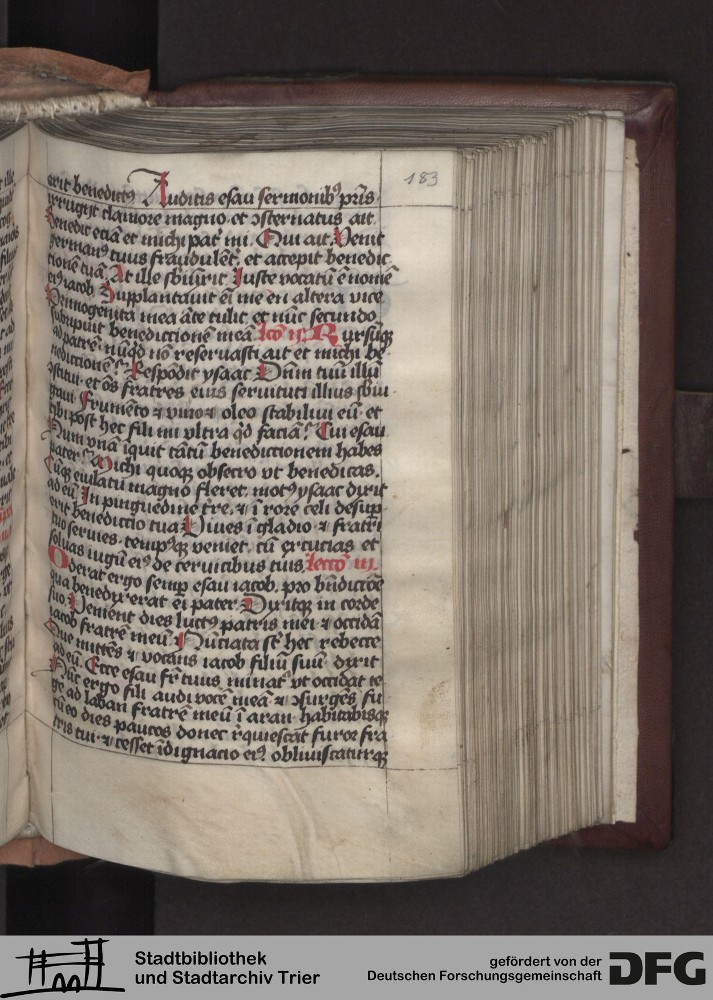 183
erit benedictꝰ Auditis esau sermonibꝰ pr̄is
irrugijt clamore magno et ↄsternatus ait
Benedic etiā et michi pat̾ mi. Qui ait. Uenit
germanꝰ tuus fraudulēt̾. et accepit benedic
tionē tuā. At ille sbiūxit Iuste vocatū ē nomē
eiꝰ iacob Supplantauit em̄ me en altera vice
Primogenita mea āte tulit. et nūc secundo
subripuit benedictionem meā. lcō ij. Rursūqꝫ
ad patrē nūqd nō reseruasti ait et michi be
nedictionē? Respōdit ysaac Dn̄m tuū illū
ↄstitui. et oēs fratres eius seruituti illius sbiu
gaui Frumēto ⁊ vino ⁊ oleo stabiliui eū et
tibi post hec fili mi vltra qd faciā? Cui esau
Num vnā īquit tātū benedictionem habes
pater Michi quoqꝫ obsecro vt benedicas.
Cūqꝫ eiulatu magno fleret. motꝰ ysaac dixit
ad eū In pinguedine t̄re. ⁊ ī rore celi desup̄
erit benedictio tua Uiues ī gladio ⁊ fratri
tuo seruies. tempꝰqꝫ veniet. cū excutias et
soluas iugū eiꝰ de ceruicibus tuis. lectō iij.
Oderat ergo semp̄ esau iacob. pro bn̄dictōe
qua benedixerat ei pater Dixitqꝫ in corde
suo Uenient dies luctꝰ patris mei ⁊ occidā
iacob fratrē meū Nūciata st̄ hec rebecce
Que mittēs ⁊ vocans iacob filiū suū dixit
ad eū. Ecce esau fr̄ tuus minat̾ vt occidat te
Nūc ergo fili audi vocē meā ⁊ ↄsurgēs fu
ge ad laban fratrē meū ī aran habitabisqꝫ
cū eo dies paucos donec r̄quiescat furor fra
tris tui ⁊ cesset īdignacio eiꝰ obliuiscaturqꝫ
Stadtbibliothek
und Stadtarchiv Trier
gefördert von der
Deutschen Forschungsgemeinschaft
DFG